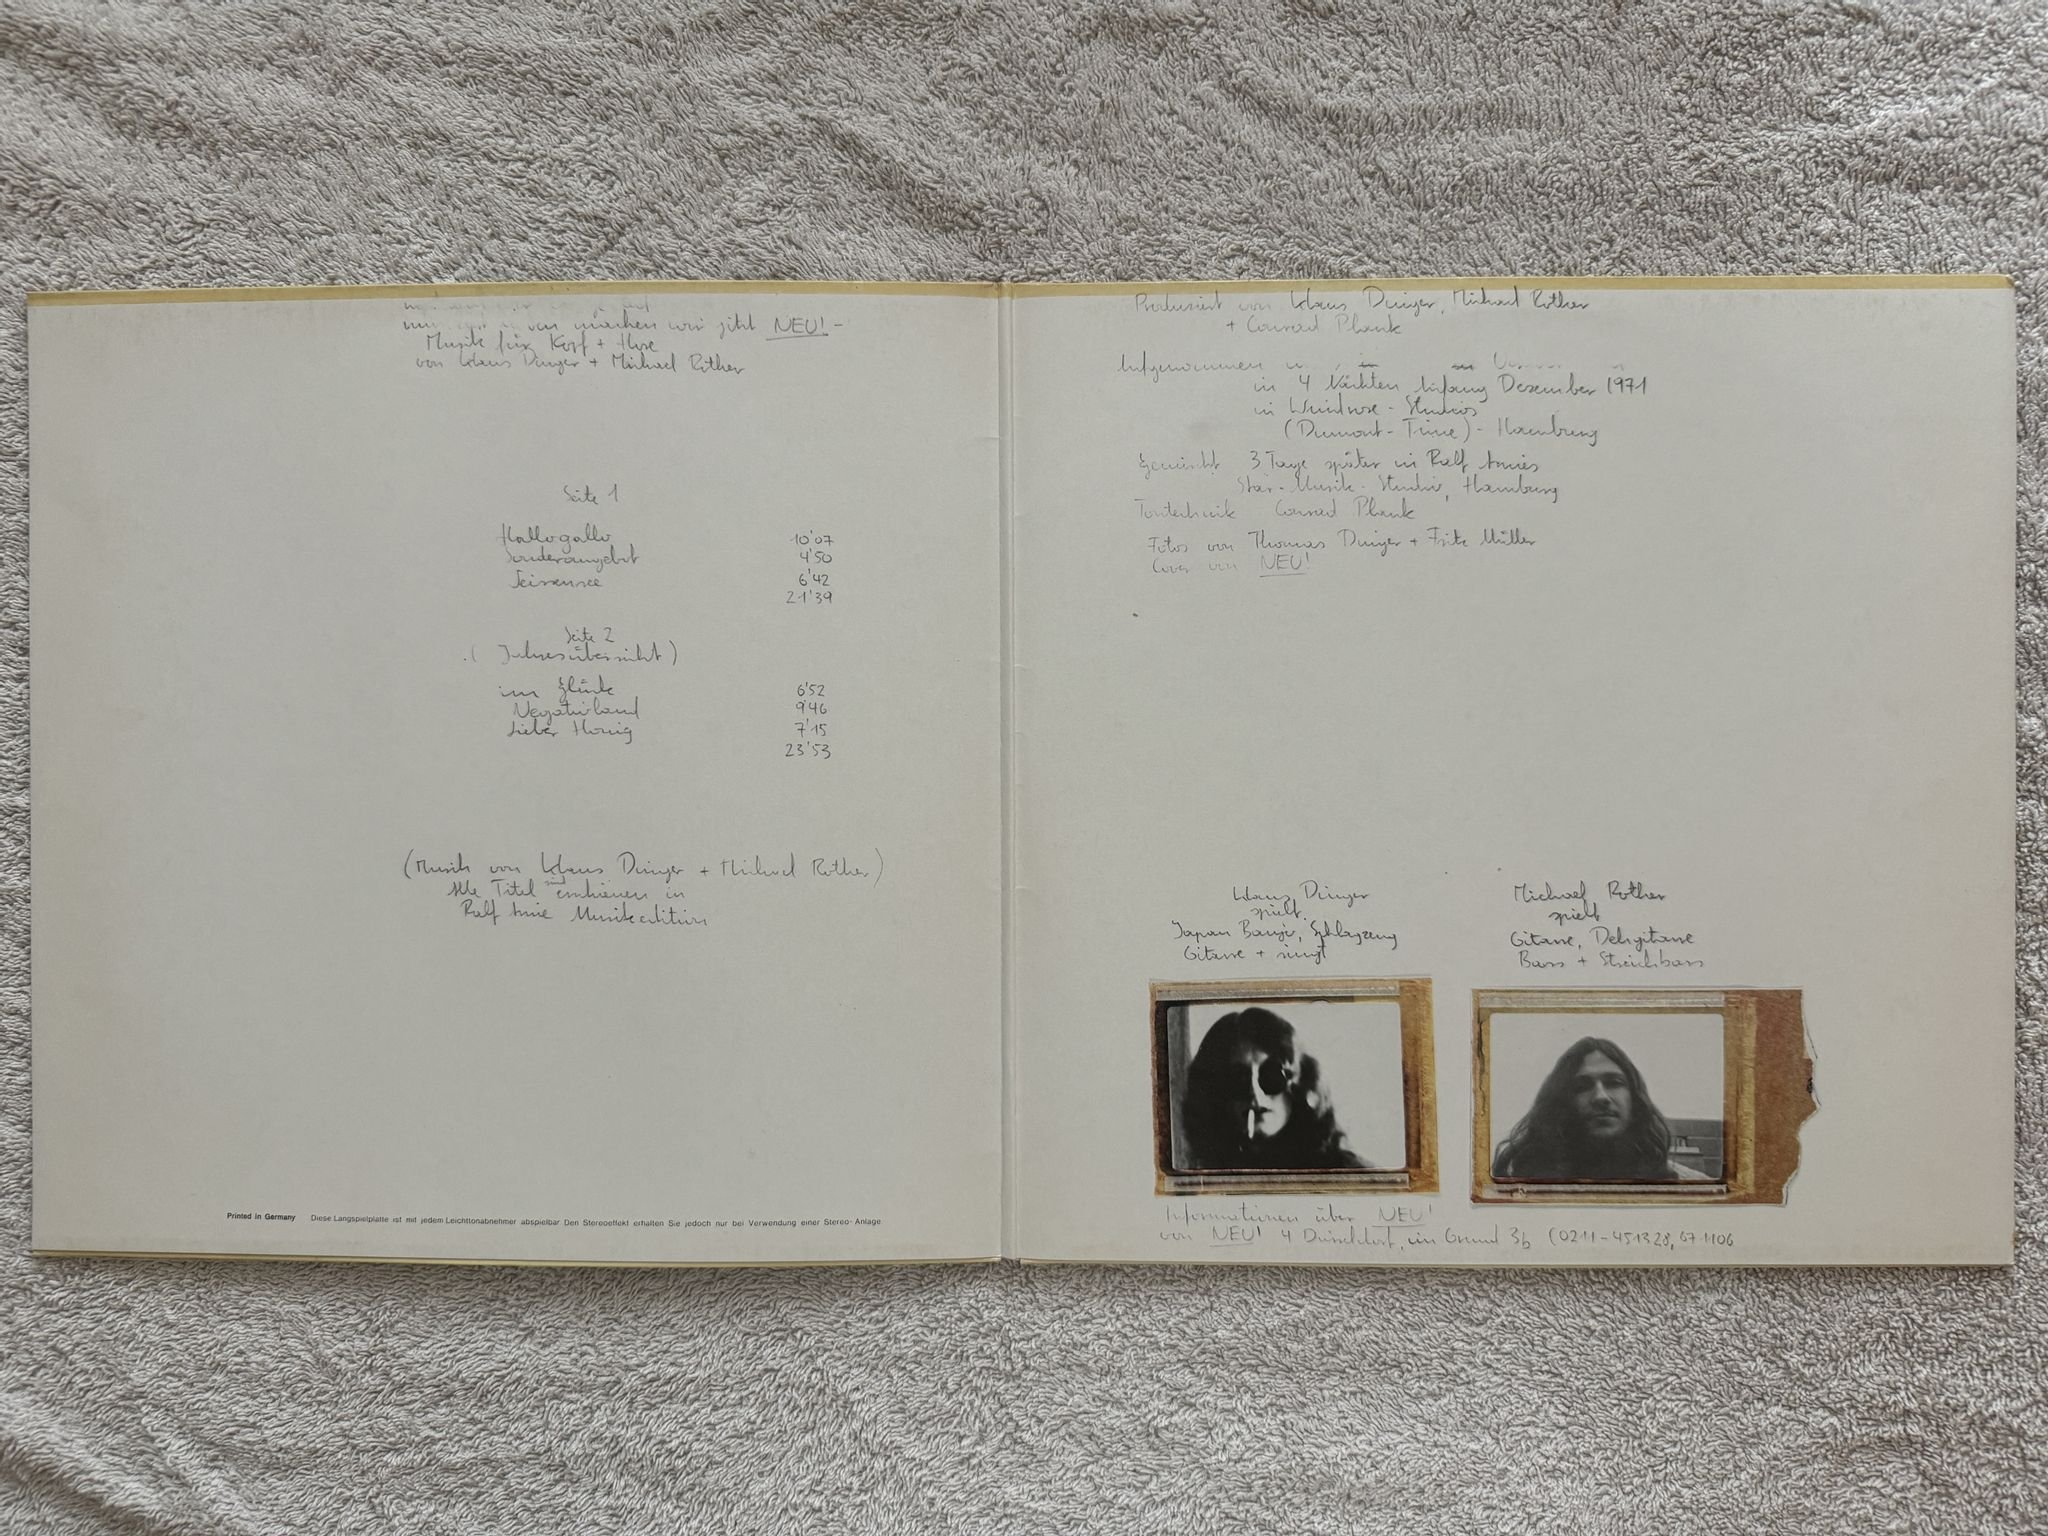 machen wir jetzt NEU! -
Musik für Kopf + Hose
von Klaus Dinger + Michael Rother
Seite 1
Hallogallo 10'07
Sonderangebot 4'50
Weissensee 6'42
21'39
Seite 2
(Jahresübersicht)
im Glück 6'52
Negativland 9'46
Lieber Honig 7'15
23'53
(Musik von Klaus Dinger + Michael Rother)
Alle Titel sind erschienen in
Ralf Arnie Musikedition
Printed in Germany Diese Langspielplatte ist mit jedem Leichttonabnehmer abspielbar Den Stereoeffekt erhalten Sie jedoch nur bei Verwendung einer Stereo-Anlage
Produziert von Klaus Dinger, Michael Rother
+ Conrad Plank
Aufgenommen
in 4 Nächten Anfang Dezember 1971
in Windrose-Studios
(Dumont-Time) - Hamburg
Gemischt 3 Tage später in Ralf Arnies
Star-Musik-Studio, Hamburg
Tontechnik Conrad Plank
Fotos von Thomas Dinger + Fritz Müller
Cover von NEU!
Klaus Dinger
spielt
Japan Banjo, Schlagzeug
Gitarre + singt
Michael Rother
spielt
Gitarre, Dehngitarre
Bass + Streichbass
Informationen über NEU!
von NEU! 4 Düsseldorf, im Grund 3b (0211-451328, 671106